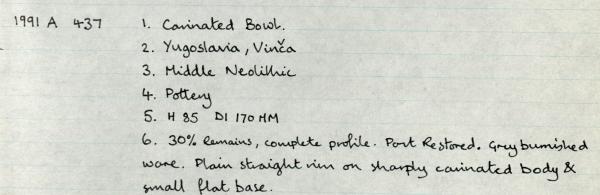 1991 A 437 1. Carinated Bowl.
2. Yugoslavia, Vinča
3. Middle Neolithic
4. Pottery
5. H 85 DI 170 MM
6. 30% Remains, complete profile. Part Restored. Grey burnished
ware. Plain straight rim on sharply carinated body &
small flat base.